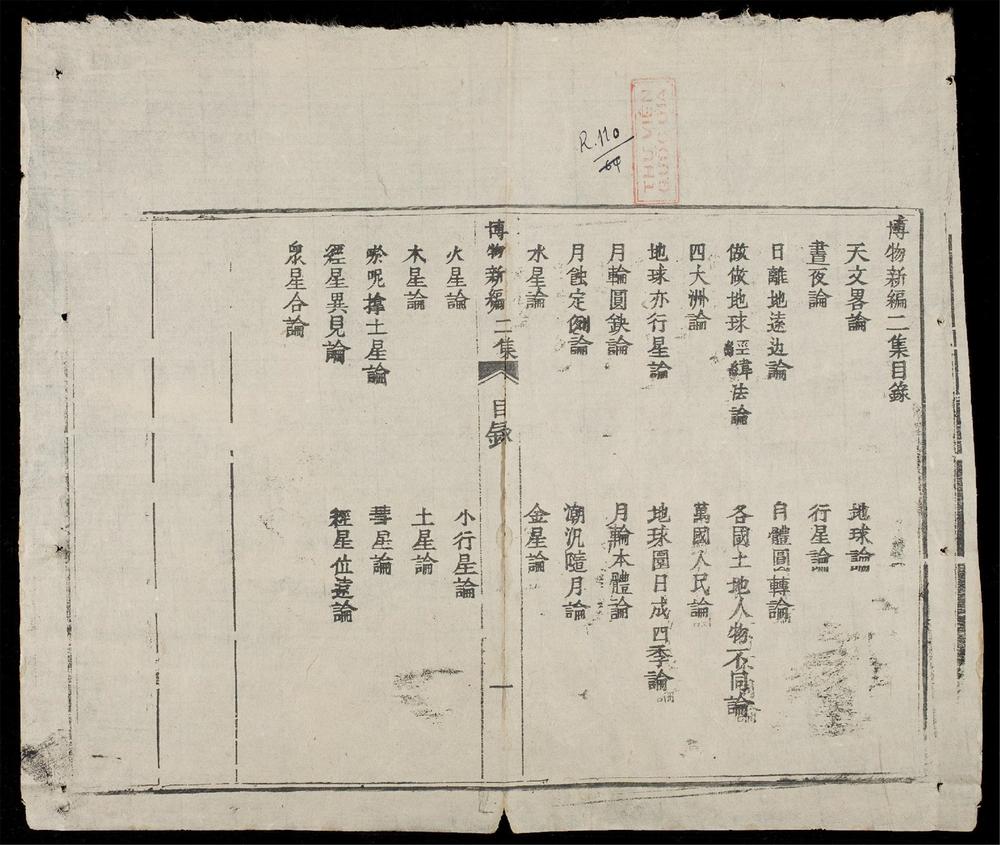 R.110
64
THƯ VIỆN
博物新編二集目錄
天文畧論
地球論
晝夜論
行星論
日離地遠边論
自體圓轉論
做做地球經緯法論
各國土地人物不同論
四大洲論
萬國人民論
地球亦行星論
地球圍日成四季論
月輪圓缺論
月輪本體論
月蝕定例論
潮汛隨月論
水星論
金星論
博物新編二集
目録
一
火星論
小行星論
木星論
土星論
唹呢㨃土星論
彗星論
經星異見論
經星位遠論
衆星合論